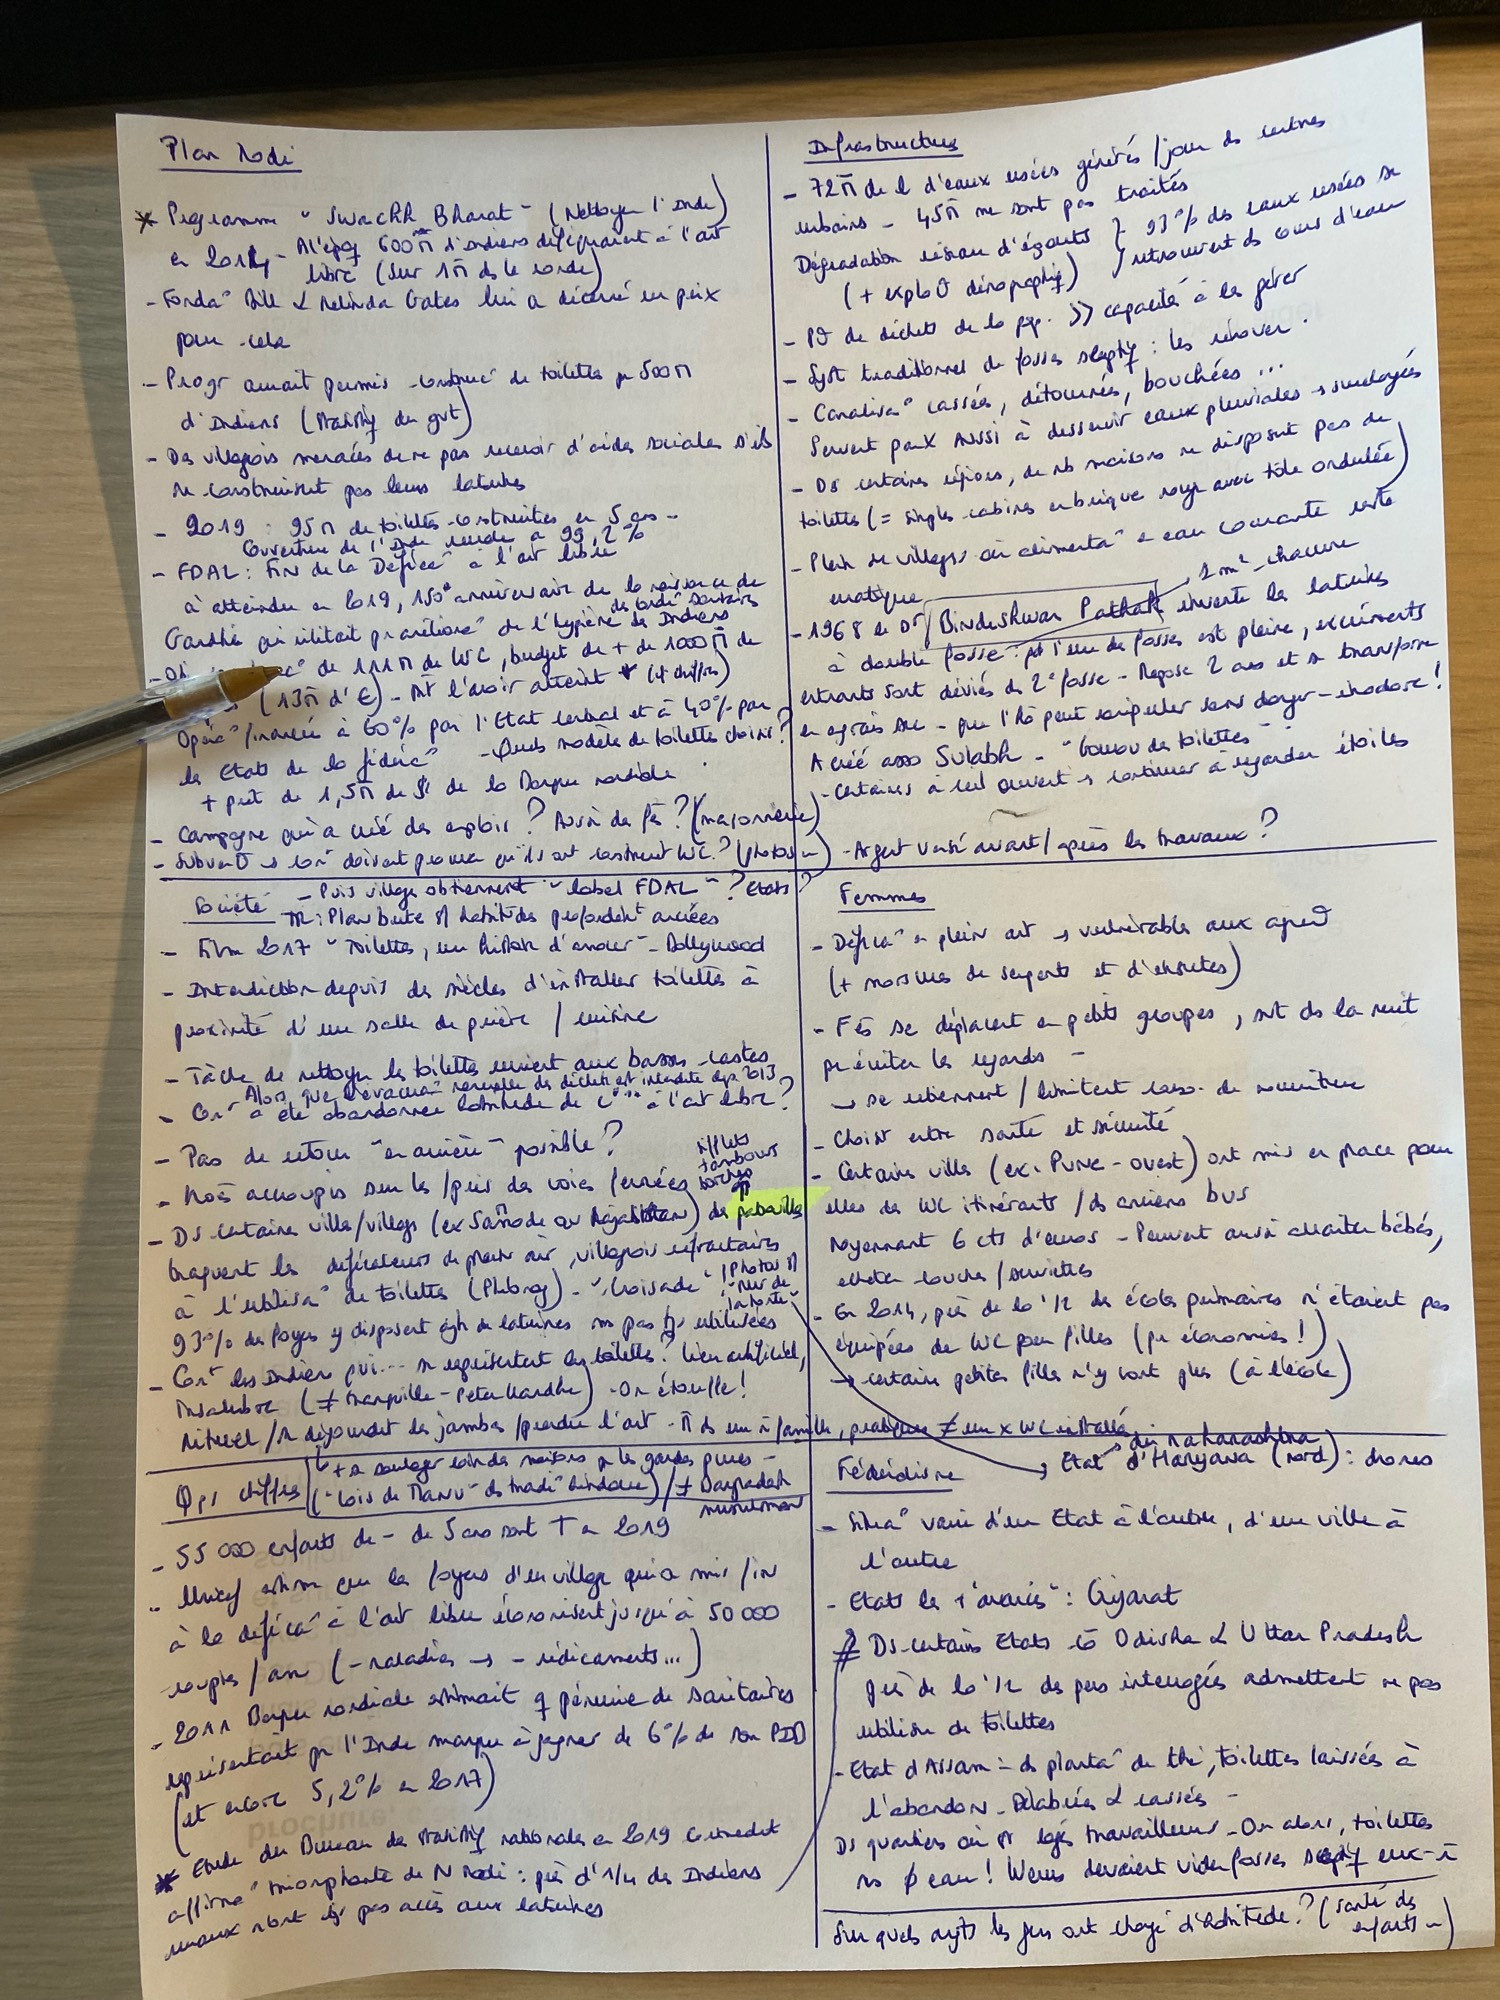 Plan Modi
* Programme "Swachh Bharat" (Nettoyer l'Inde)
en 2014 - A l'époq 600M d'Indiens déféquaient à l'air
libre (sur 1M ds le monde)
- Fondao Bill & Melinda Gates lui a décerné un prix
pour cela
- Progr aurait permis construco de toilettes pr 500M
d'Indiens (statistiq du gvt)
- Des villageois menacés de ne pas recevoir d'aides sociales s'ils
ne construisent pas leurs latrines
- 2019 : 95M de toilettes construites en 5 ans -
Couverture de l'Inde rurale à 99,2%
- FDAL : Fin de la Déféco à l'air libre
à atteindre en 2019, 150e anniversaire de la naissance de
Gandhi qui militait pr améliorao de l'hygiène des Indiens
des condio sanitaires
de 111M de WC, budget de + de 1000M de
(13M d'€) - Dit l'avoir atteint * (4 chiffres)
Opérao financée à 60% par l'Etat central et à 40% par
les Etats de la fédérao - Quels modèles de toilettes choisis ?
+ prêt de 1,5M de $ de la Banque mondiale
- Campagne qui a créé des emplois ? Aussi des fes ? (maçonnerie)
- Subvento → cont doivent prouver qu'ils ont construit WC ? (photos) - Argent versé avant / après les travaux ?
- Puis villages obtiennent "label FDAL" ? Etats ?
Infrastructures
- 72M de l d'eaux usées générés / jour ds centres
urbains - 45M ne sont pas traités
Dégradation réseau d'égouts } 93% des eaux usées se
(+ explo démographiq) retrouvent ds cours d'eau
- Pd de déchets de la pop. >> capacité à les gérer
- Syst traditionnel de fosses septiq : les rénover.
- Canaliso cassées, détournées, bouchées ...
Servent parfx aussi à desservir eaux pluviales → surchargées
- Ds certaines régions, de nb maisons ne disposent pas de
toilettes (= simples cabines en brique rouge avec tôle ondulée)
- Plein de villages où alimentao en eau courante reste
erratique
1 m² chacune
- 1968 le Dr Bindeshwar Pathak invente les latrines
à double fosse : qd l'une des fosses est pleine, excréments
entrants sont déviés ds 2e fosse - Repose 2 ans et se transforme
en engrais sec - que l'Ho peut manipuler sans danger - inodore !
A créé asso Sulabh - "Gourou des toilettes"
- Certaines à ciel ouvert → continuer à regarder étoiles
Société
TR : Plan bute s/ habitudes profondémt ancrées
- Film 2017 "Toilettes, une histoire d'amour" - Bollywood
- Interdiction depuis des siècles d'installer toilettes à
proximité d'une salle de prière / cuisine
- Tâche de nettoyer les toilettes revient aux basses castes
Alors que l'évacuao manuelle des déchets est interdite dps 2013
- Cont a été abandonnée l'habitude de à l'air libre ?
- Pas de retour "en arrière" possible ?
- Accroupis sur les / près des voies ferrées
sifflets
tambours
torches
- Ds certaines villes/villages (ex Samode au Rajasthan) des patrouilles
traquent les déféqueurs de plein air, villageois réfractaires
à l'utilisao de toilettes (Phbrog) - "Croisade" (Photos s/
"mur de la honte")
93% des foyers y disposent ajh de latrines ms pas tjs utilisées
- Cont les Indiens qui... se représentent les toilettes ? Lieu artificiel,
insalubre (≠ tranquille - Peter Mandhe) - On étouffe !
Rituel / se dégourdit les jambes / prendre l'air - M ds une m famille, pratiques ≠ une x WC installés
+ se soulager loin des maisons pr les garder pures -
("Lois de Manu" ds tradio hindoue) / ≠ Bangladesh
musulman
Femmes
- Déféco en plein air → vulnérables aux agred
(+ morsures de serpents et d'insectes)
- Fes se déplacent en petits groupes, srt ds la nuit
pr éviter les regards -
→ se retiennent / limitent conso. de nourriture
- Choisir entre santé et sécurité
- Certaines villes (ex. Pune - ouest) ont mis en place pour
elles des WC itinérants / ds anciens bus
Moyennant 6 cts d'euros - Peuvent aussi allaiter bébés,
acheter couches / serviettes
- En 2014, près de la 1/2 des écoles primaires n'étaient pas
équipées de WC pour filles (pr économies !)
→ certaines petites filles n'y vont plus (à l'école)
Qqs chiffres
- 55 000 enfants de - de 5 ans sont † en 2019
- Unicef estime que les foyers d'un village qui a mis fin
à la déféco à l'air libre économisent jusqu'à 50 000
roupies / an (- maladies → - médicaments...)
- 2011 Banque mondiale estimait q pénurie de sanitaires
représentait pr l'Inde manque à gagner de 6% de son PIB
(et encore 5,2% en 2017)
* Etude du Bureau des statistiq nationales en 2019 contredit
affirmo triomphante de N Modi : près d'1/4 des Indiens
ruraux n'ont tjs pas accès aux latrines
Fédéralisme
du Maharashtra
Etat d'Haryana (nord) : drones
- Situao varie d'un Etat à l'autre, d'une ville à
l'autre
- Etats les + "avancés" : Gujarat
≠ Ds certains Etats cô Odisha & Uttar Pradesh
près de la 1/2 des pers interrogées admettent ne pas
utiliser de toilettes
- Etat d'Assam : ds plantao de thé, toilettes laissées à
l'abandon - Délabrées & cassées -
Ds quartiers où st logés travailleurs - Ou alors, toilettes
ms ∅ eau ! Weurs devaient vider fosses septiq eux-m
Sur quels sujets les gens ont changé d'habitude ? (santé des
enfants)